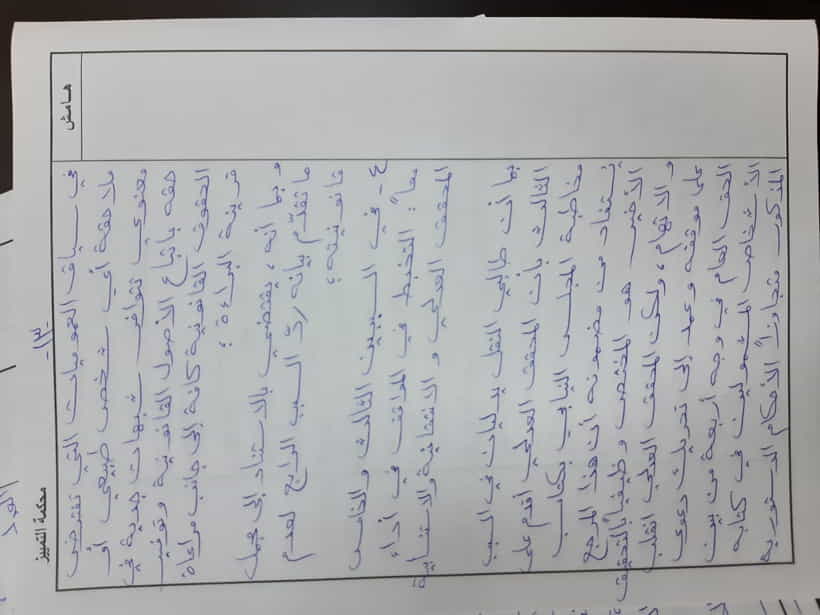 محكمة التمييز
-١٣-
هامش
في سياق العموميات التي تفترض
ملاحقة أي شخص طبيعي أو
معنوي تتوافر شبهات جدية في
حقه باتباع الأصول القانونية وتوفير
الحقوق القانونية كافة إلى جانب مراعاة
قرينة البراءة؛
وبما أنه، يقتضي بالاستناد إلى مجمل
ما تقدّم بيانه ردّ السبب الرابع لعدم
قانونيته؛
٤- في السببين الثالث والخامس
معاً: التخبط في المواقف في أداء
المحقق العدلي والانتقائية والاستنسابية
بما أن طالبي النقل يدليان في السبب
الثالث بأن المحقق العدلي أقدم على
مخاطبة المجلس النيابي بكتاب
يستفاد من مضمونه أن هذا المرجع
الأخير هو المختص وظيفياً للتحقيق
والاتهام، ولكن المحقق العدلي انقلب
على موقفه وعمد إلى تحريك دعوى
الحق العام في وجه أربعة من بين
الأشخاص المشمولين في كتابه
المذكور متجاوزاً الأحكام الدستورية